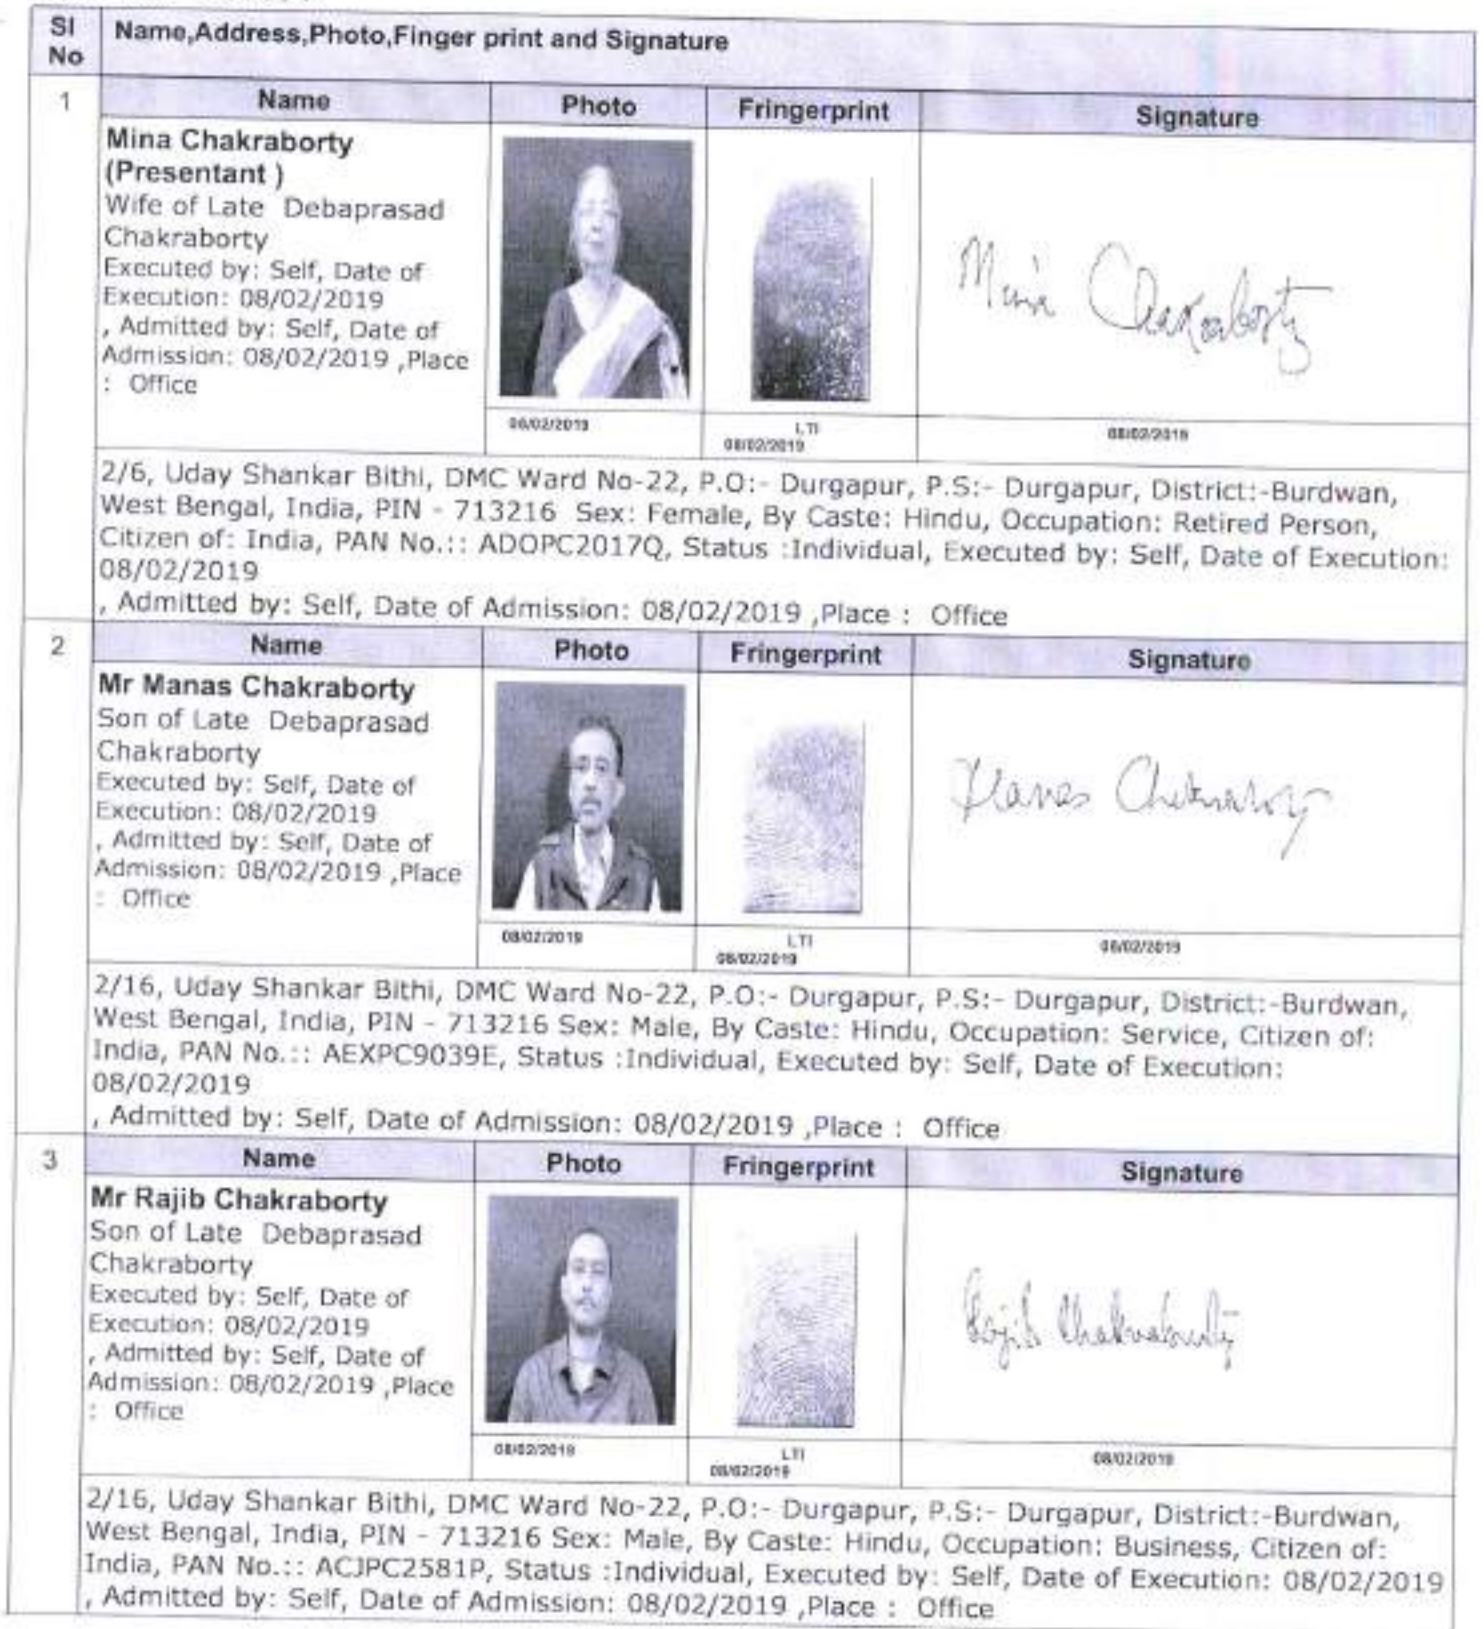 Sl No Name,Address,Photo,Finger print and Signature
1 Name Photo Fringerprint Signature
Mina Chakraborty
(Presentant )
Wife of Late Debaprasad
Chakraborty
Executed by: Self, Date of
Execution: 08/02/2019
, Admitted by: Self, Date of
Admission: 08/02/2019 ,Place
: Office
Mina Chakraborty
08/02/2019 LTI
08/02/2019 08/02/2019
2/6, Uday Shankar Bithi, DMC Ward No-22, P.O:- Durgapur, P.S:- Durgapur, District:-Burdwan,
West Bengal, India, PIN - 713216 Sex: Female, By Caste: Hindu, Occupation: Retired Person,
Citizen of: India, PAN No.:: ADOPC2017Q, Status :Individual, Executed by: Self, Date of Execution:
08/02/2019
, Admitted by: Self, Date of Admission: 08/02/2019 ,Place : Office
2 Name Photo Fringerprint Signature
Mr Manas Chakraborty
Son of Late Debaprasad
Chakraborty
Executed by: Self, Date of
Execution: 08/02/2019
, Admitted by: Self, Date of
Admission: 08/02/2019 ,Place
: Office
Manas Chakraborty
08/02/2019 LTI
08/02/2019 08/02/2019
2/16, Uday Shankar Bithi, DMC Ward No-22, P.O:- Durgapur, P.S:- Durgapur, District:-Burdwan,
West Bengal, India, PIN - 713216 Sex: Male, By Caste: Hindu, Occupation: Service, Citizen of:
India, PAN No.:: AEXPC9039E, Status :Individual, Executed by: Self, Date of Execution:
08/02/2019
, Admitted by: Self, Date of Admission: 08/02/2019 ,Place : Office
3 Name Photo Fringerprint Signature
Mr Rajib Chakraborty
Son of Late Debaprasad
Chakraborty
Executed by: Self, Date of
Execution: 08/02/2019
, Admitted by: Self, Date of
Admission: 08/02/2019 ,Place
: Office
Rajib Chakraborty
08/02/2019 LTI
08/02/2019 08/02/2019
2/16, Uday Shankar Bithi, DMC Ward No-22, P.O:- Durgapur, P.S:- Durgapur, District:-Burdwan,
West Bengal, India, PIN - 713216 Sex: Male, By Caste: Hindu, Occupation: Business, Citizen of:
India, PAN No.:: ACJPC2581P, Status :Individual, Executed by: Self, Date of Execution: 08/02/2019
, Admitted by: Self, Date of Admission: 08/02/2019 ,Place : Office